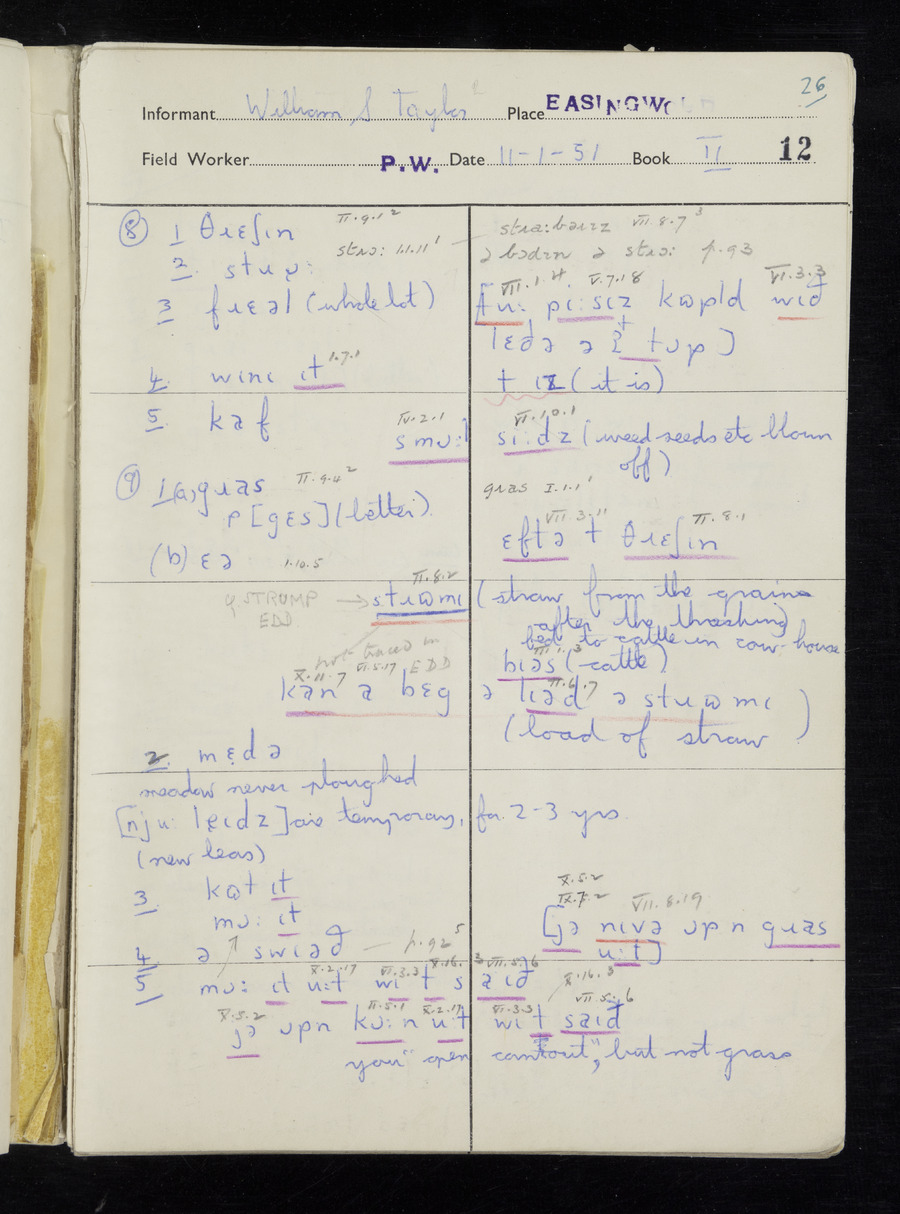 26
Informant William S Taylor Place EASINGWO
Field Worker P.W. Date 11-1-51 Book II 12
⑧ 1 θɹɛʃin II.9.1²
strɔ: 1.1.11¹
2.
3 fɹɛəl (whole lot)
4. wini it 1.7.1
5. kaf
IV.2.1
smu:l
straːbəirz VII.8.7³
ə bɔdɪn ə strɔ: p.93
VII.1.4 V.7.18 VI.3.3
pi:siz wið
lɛðə tʊp]
t ɪz (it is)
VI.10.1
si:dz (weed-seeds etc blown
off)
⑨ 1(a) gɹas II.9.4²
p [gɛs] (better)
(b) ɛə 1.10.5
gras I.1.1¹
VII.3.11 II.8.1
ɛftə t θɹɛʃin
II.8.2
STRUMP → stɹʊmi (straw from the grains
EDD after the thrashing
fed to cattle in cow-house
not traced in
EDD
biəs (cattle)
X.11.7 VI.5.17 II.6.7
kan a bɛg ə liəd ə stɹʊmi
(load of straw)
2. mɛdə
meadow never ploughed
[nju: lɛidz] are temporary, for 2-3 yrs.
(new leas)
3. kʊt it
mu: it
X.5.2
IX.7.2 VII.8.19
[jə nivə ʊpn gɹas
u:t]
4. ə swiəð — p.92⁵
X.2.17 VI.3.3 X.16.3 VII.5.6
5 mu: it u:t wi t saið
X.16.3
VII.5.6
X.5.2 II.5.1 X.2.17 VI.3.3
jə ʊpn ku:n u:t wi t saið
you "open corn out", but not grass